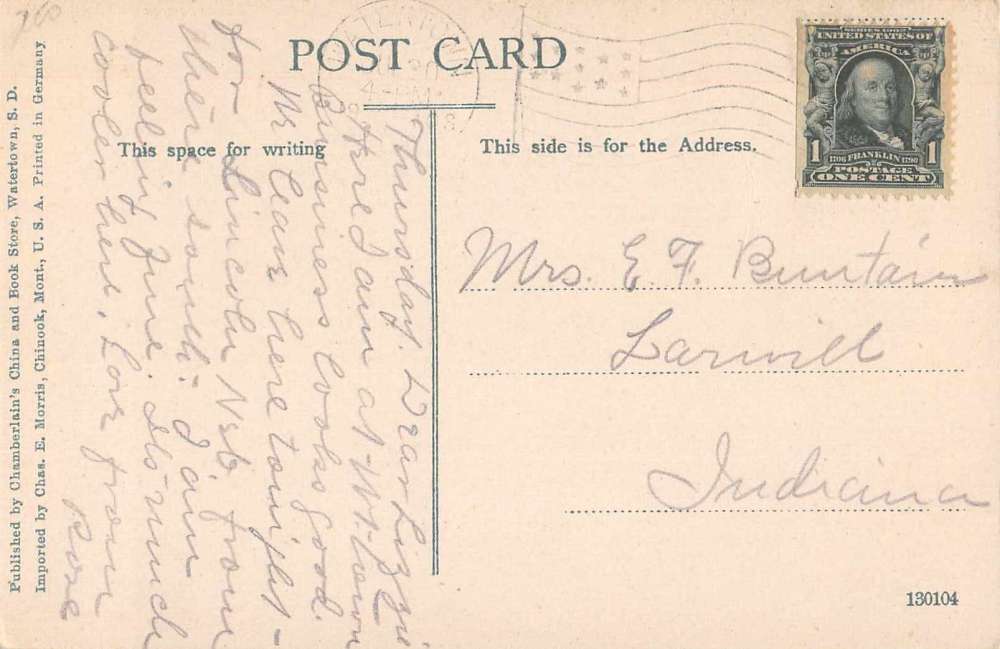 POST CARD
This space for writing
This side is for the Address.
SERIES 1902
UNITED STATES OF
AMERICA
1 1706 FRANKLIN 1790 1
POSTAGE
ONE CENT
4-PM
Mrs. E. F. Buntain
Larwill
Indiana
130104
Thursday. Dear Lizzie
Here I am at
Business looks good.
We leave here tonight-
for Lincoln Neb from
there south. I am
feeling fine. Its much
cooler here. Love from
Rose
Published by Chamberlain's China and Book Store, Watertown, S. D.
Imported by Chas. E. Morris, Chinook, Mont., U. S. A. Printed in Germany